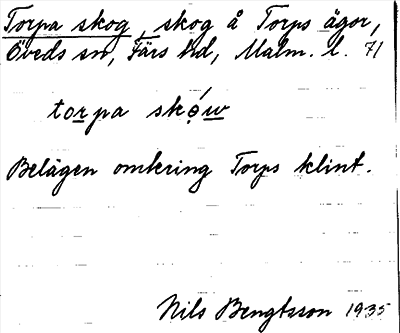 Torpa skog, skog å Torps ägor,
Öveds sn, Färs hd, Malm. l. 71
torpa skǫ́w
Belägen omkring Torps klint.
Nils Bengtsson 1935